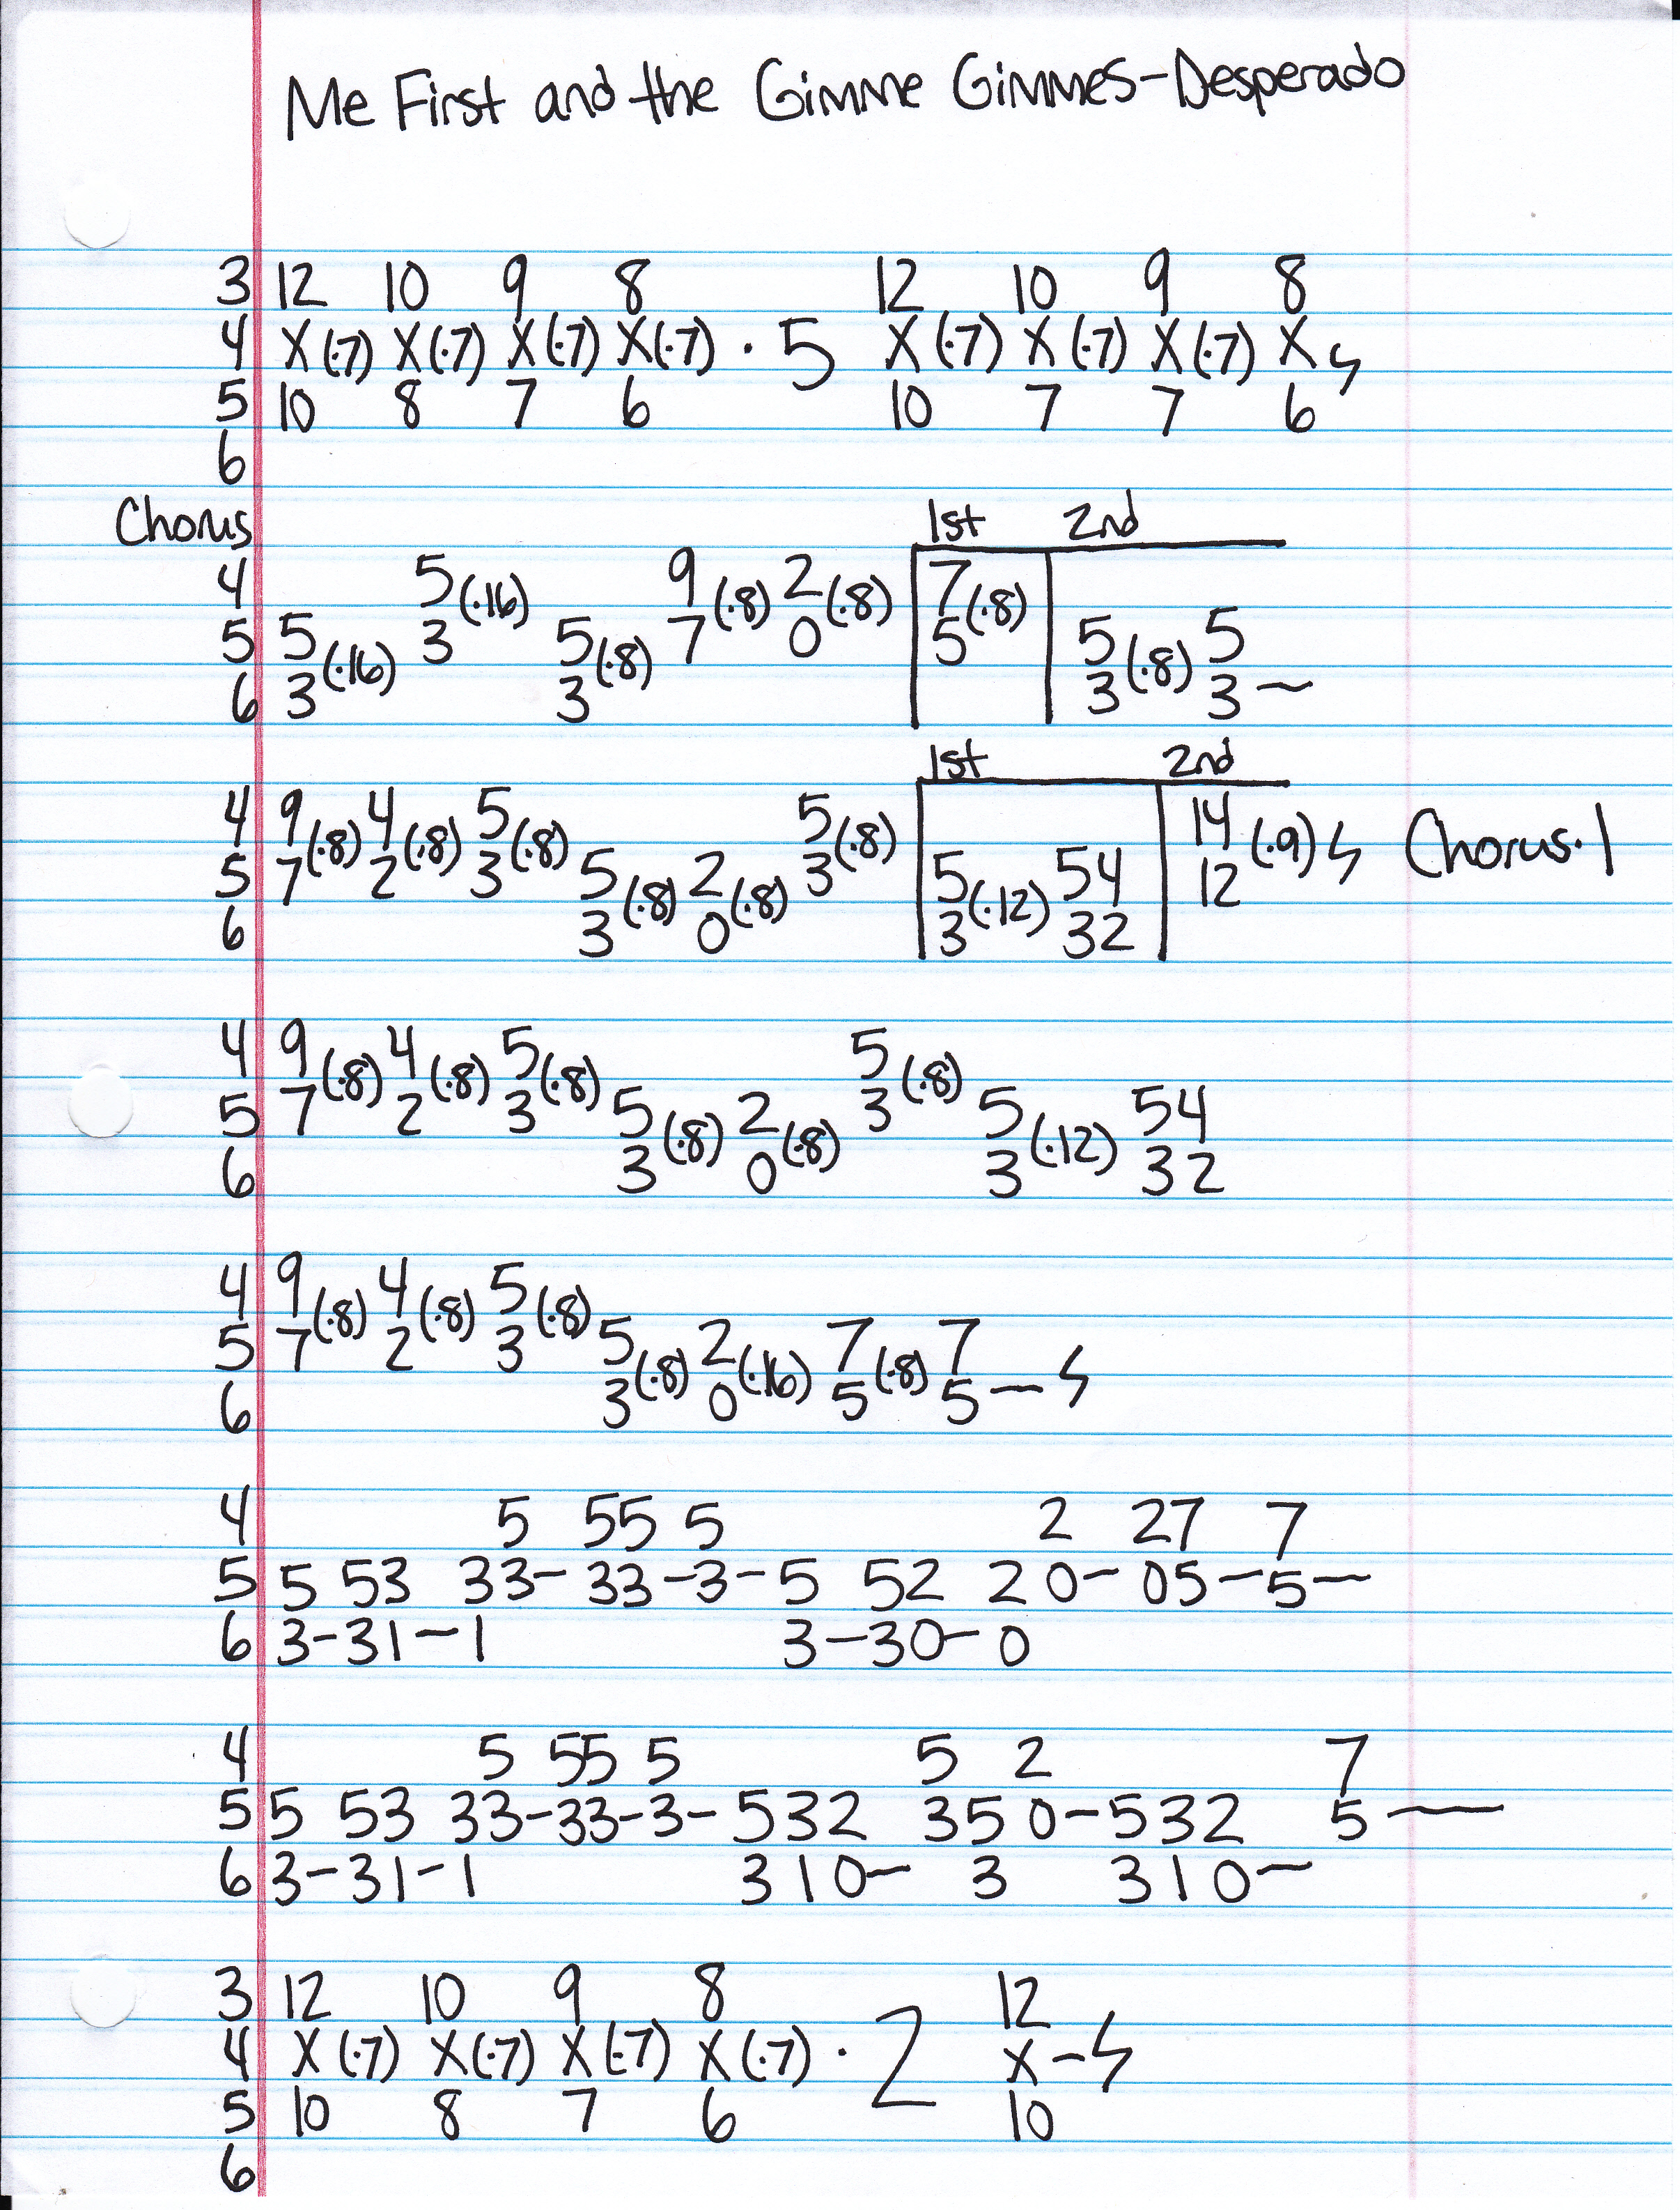 Me First and the Gimme Gimmes-Desperado
3 12 10 9 8 12 10 9 8
4 X (·7) X (·7) X (·7) X (·7) · 5 X (·7) X (·7) X (·7) X
5 10 8 7 6 10 7 7 6
6
Chorus 1st 2nd
4 5 (·16) 9 (·8) 2 (·8) 7 (·8)
5 5 (·16) 3 5 (·8) 7 0 5 5 (·8) 5
6 3 3 3 3 –
1st 2nd
4 9 (·8) 4 (·8) 5 (·8) 5 (·8) 14 (·9) Chorus·1
5 7 2 3 5 (·8) 2 (·8) 3 5 (·12) 54 12
6 3 0 3 32
4 9 (·8) 4 (·8) 5 (·8) 5 (·8)
5 7 2 3 5 (·8) 2 (·8) 3 5 (·12) 54
6 3 0 3 32
4 9 (·8) 4 (·8) 5 (·8)
5 7 2 3 5 (·8) 2 (·16) 7 (·8) 7
6 3 0 5 5 –
4 5 55 5 2 27 7
5 5 53 33– 33–3–5 52 2 0– 05–5–
6 3–31–1 3–30–0
4 5 55 5 5 2 7
5 5 53 33–33–3–532 350–532 5 –
6 3–31–1 310– 3 310–
3 12 10 9 8 12
4 X (·7) X (·7) X (·7) X (·7) · 2 X –
5 10 8 7 6 10
6